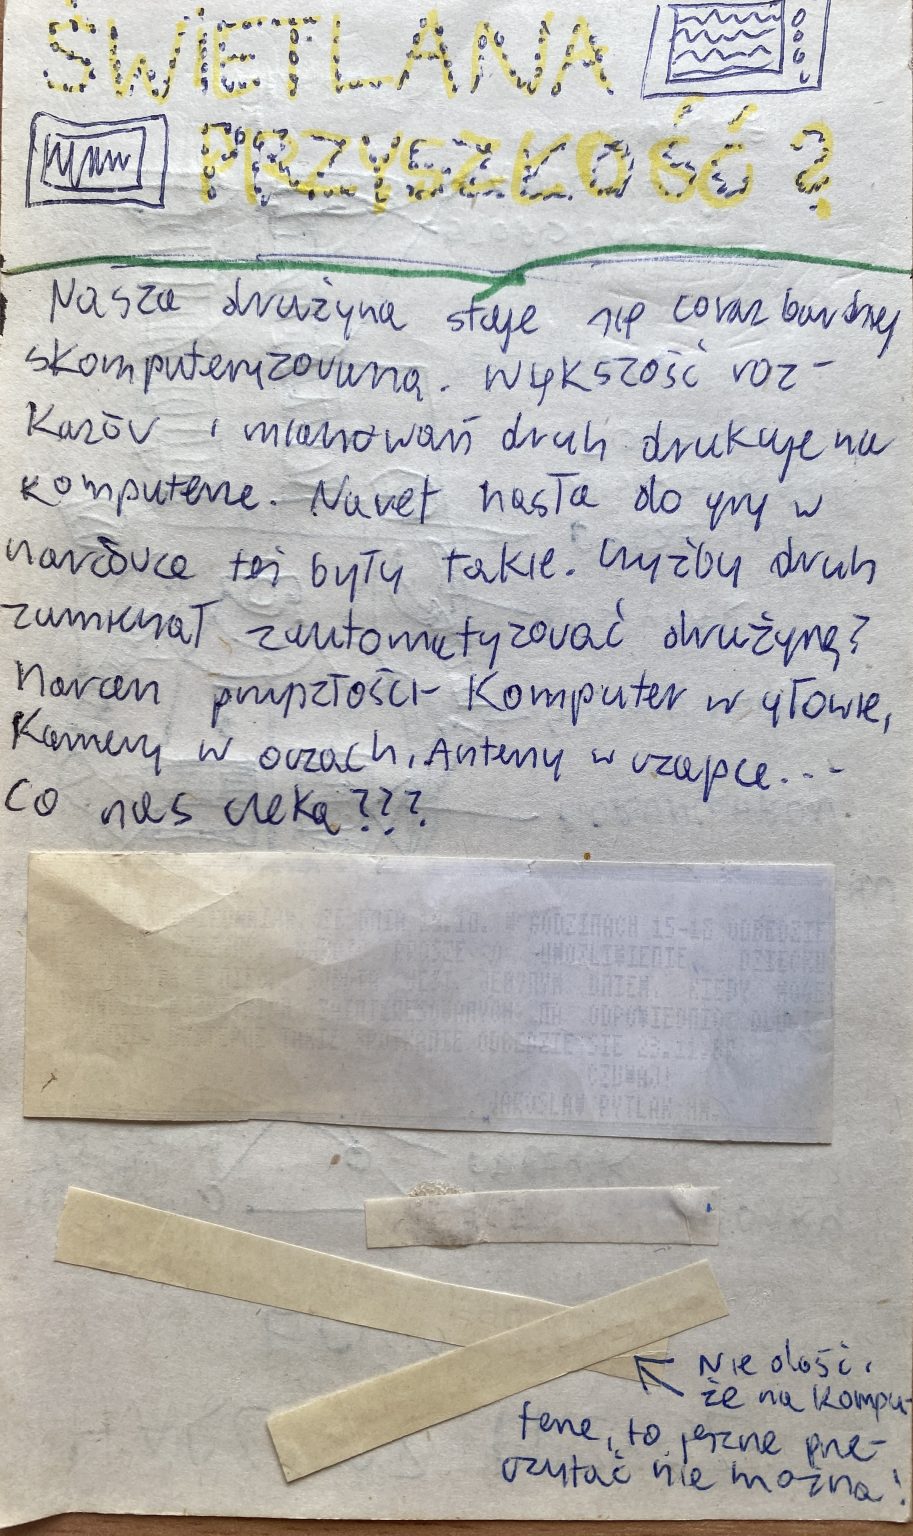 ŚWIETLANA
PRZYSZŁOŚĆ?
Nasza drużyna staje się coraz bardziej
skomputeryzowana. Większość roz-
kazów i mianowań druh drukuje na
komputerze. Nawet hasła do gry w
harcówce też były takie. Czyżby druh
zamierzał zautomatyzować drużynę?
Harcerz przyszłości - Komputer w głowie,
Kamery w oczach, Anteny w czapce...
Co nas czeka???
W GODZINACH 15-18 ODBĘDZIE
PROSZĘ O UMOŻLIWIENIE, DZIECKU
JEST JEDYNY DZIEŃ, KIEDY MOGĘ
ODPOWIEDNIO
SPOTKANIE ODBĘDZIE SIĘ 23.11.
CZUWAJ!
JAROSŁAW PYTLAK HM.
Nie dość,
że na kompu-
terze, to jeszcze prze-
czytać nie można!